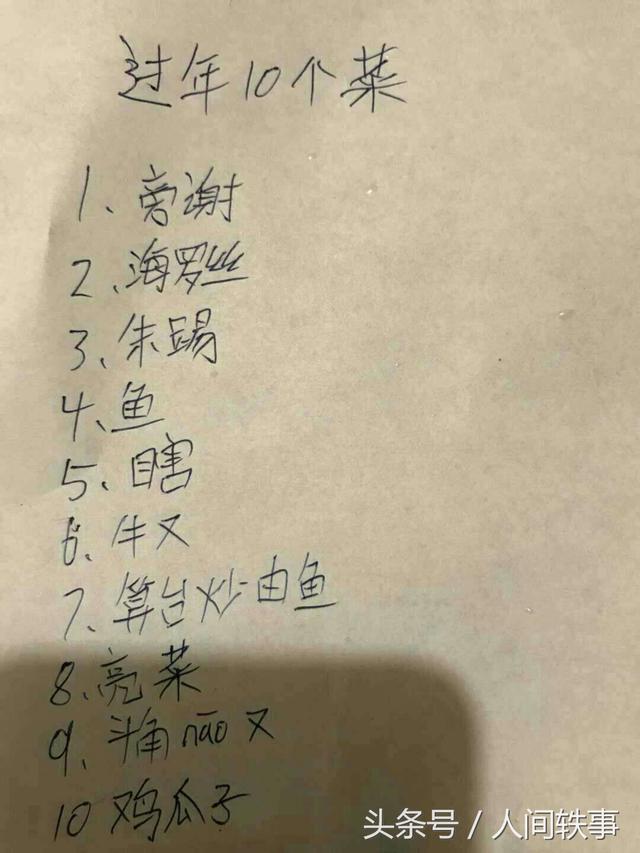 过年10个菜
1、旁谢
2、海罗丝
3、朱踢
4、鱼
5、瞎
6、牛又
7、算台炒由鱼
8、亮菜
9、斗角nāo又
10 鸡瓜子
头条号 / 人间轶事